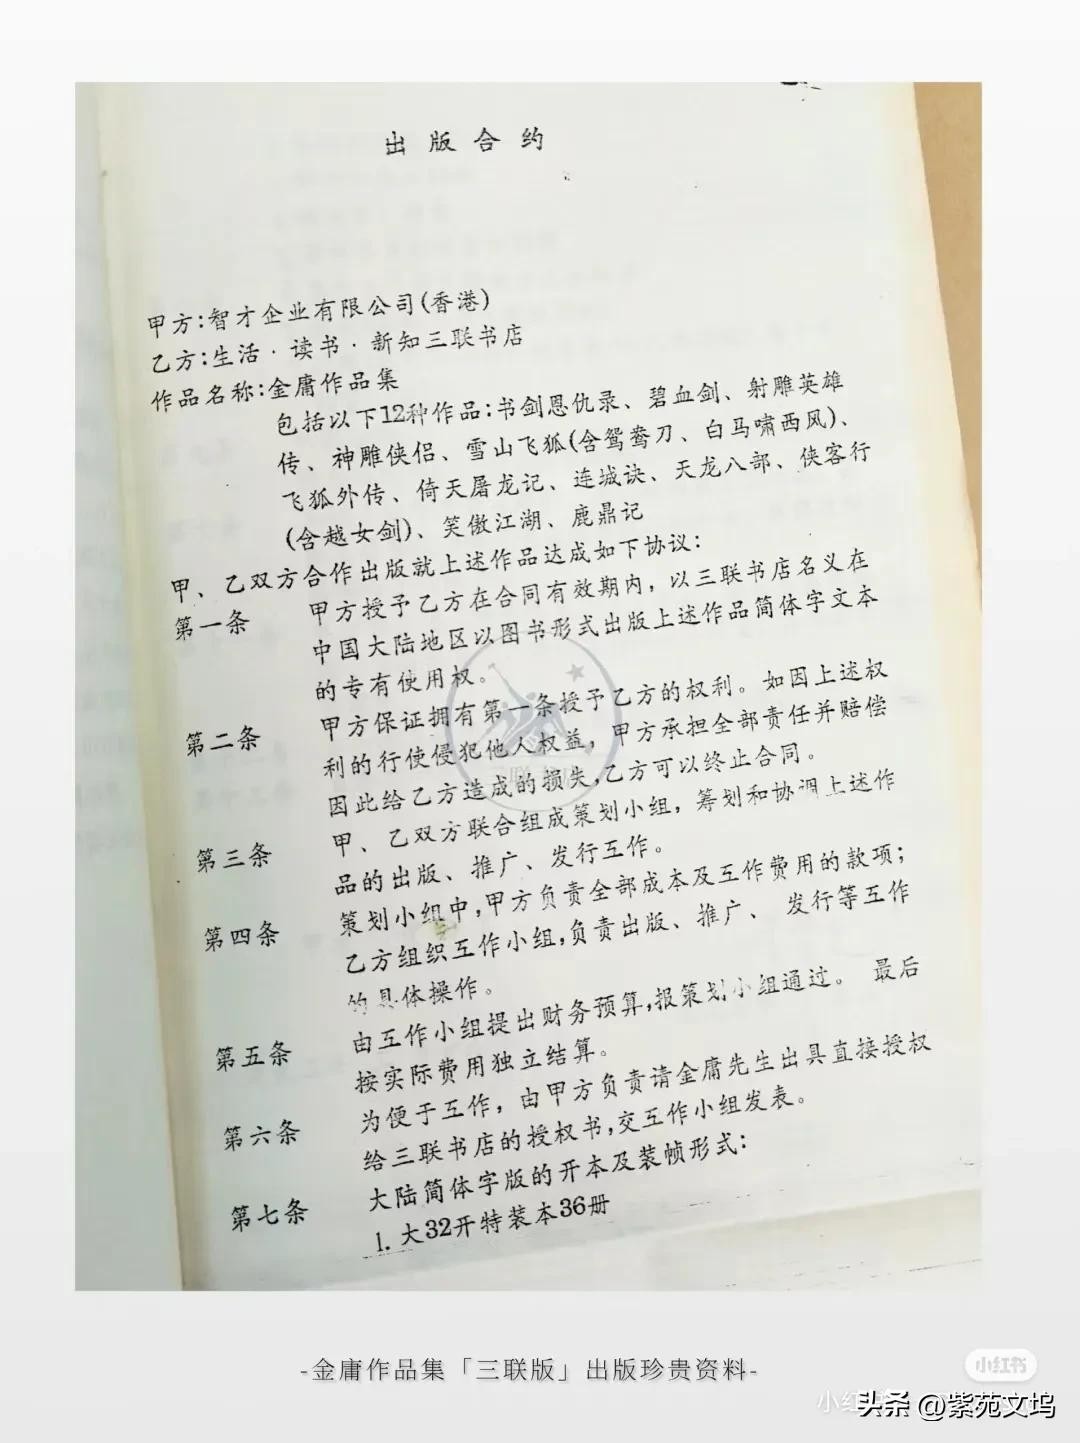 出版合约
甲方:智才企业有限公司(香港)
乙方:生活·读书·新知三联书店
作品名称:金庸作品集
包括以下12种作品:书剑恩仇录、碧血剑、射雕英雄
传、神雕侠侣、雪山飞狐(含鸳鸯刀、白马啸西风)、
飞狐外传、倚天屠龙记、连城诀、天龙八部、侠客行
(含越女剑)、笑傲江湖、鹿鼎记
甲、乙双方合作出版就上述作品达成如下协议:
第一条 甲方授予乙方在合同有效期内，以三联书店名义在
中国大陆地区以图书形式出版上述作品简体字文本
的专有使用权。
第二条 甲方保证拥有第一条授予乙方的权利。如因上述权
利的行使侵犯他人权益，甲方承担全部责任并赔偿
因此给乙方造成的损失,乙方可以终止合同。
第三条 甲、乙双方联合组成策划小组，筹划和协调上述作
品的出版、推广、发行工作。
第四条 策划小组中,甲方负责全部成本及工作费用的款项;
乙方组织工作小组,负责出版、推广、发行等工作
的具体操作。
第五条 由工作小组提出财务预算,报策划小组通过。最后
按实际费用独立结算。
第六条 为便于工作，由甲方负责请金庸先生出具直接授权
给三联书店的授权书,交工作小组发表。
第七条 大陆简体字版的开本及装帧形式:
1.大32开特装本36册
-金庸作品集「三联版」出版珍贵资料-
小红书
头条 @紫苑文坞